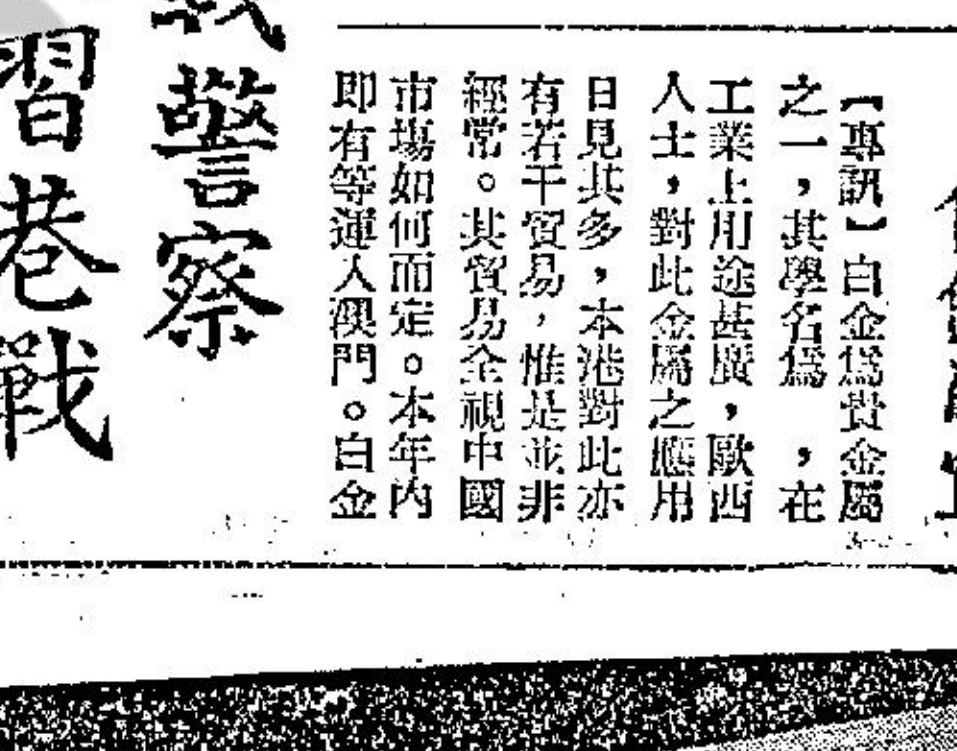 【專訊】白金爲貴金屬
之一，其學名爲　，在
工業上用途甚廣，歐西
人士，對此金屬之應用
日見其多，本港對此亦
有若干貿易，惟是並非
經常。其貿易全視中國
市場如何而定。本年內
即有等運入澳門。白金
警察
習巷戰